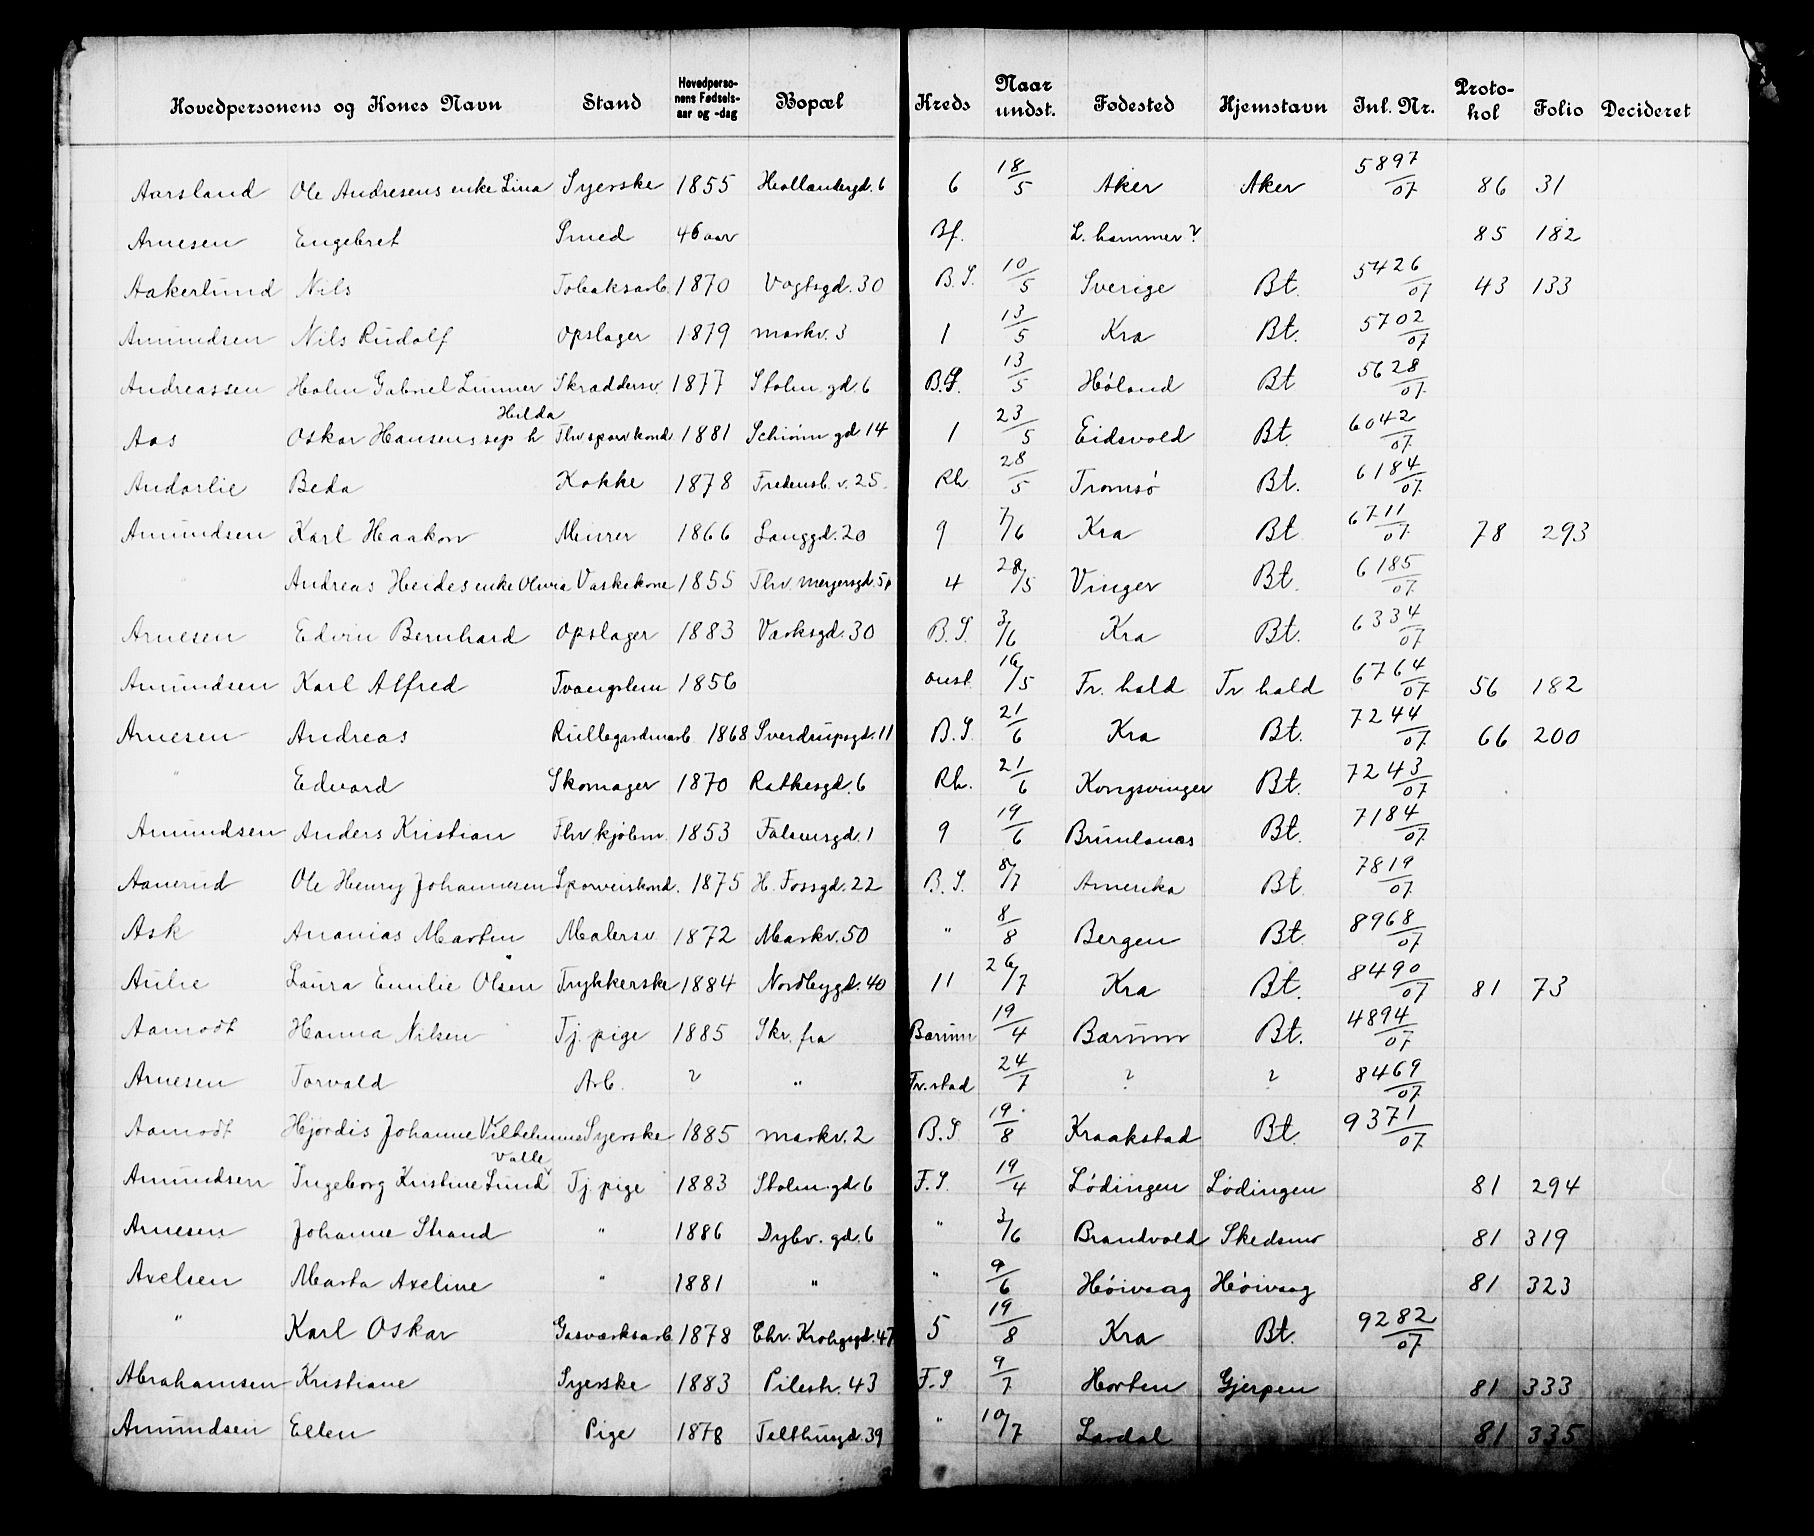 Hovedpersonens og Kones Navn | Stand | Hovedpersonens Fødselsaar og -dag | Bopæl | Kreds | Naar undst. | Fødested | Hjemstavn | Inl. Nr. | Protokol | Folio | Decideret
Aarsland Ole Andresens enke Lina Syerske 1855 Hollendergd. 6 6 18/5 Aker Aker 5897/07 86 31
Arnesen Engebret Smed 46 aar Bf. L. hammer? 85 182
Aakerlund Nils Tobaksarb. 1870 Vogtsgd. 30 B.S. 10/5 Sverige Bt. 5426/07 43 133
Amundsen Nils Rudolf Opslager 1879 Markv. 3 1 13/5 Kra Bt. 5702/07
Andreassen Holm Gabriel Linner Skræddersv. 1877 Stolm. gd. 6 B.S. 13/5 Høland Bt 5628/07
Aas Oskar Hansens sep. h Hilda Fhv sporv kond 1881 Schiønn gd 14 1 23/5 Eidsvold Bt. 6042/07
Andorlie Beda Kokke 1878 Fredensb. v. 25 Rh. 28/5 Tromsø Bt. 6184/07
Amundsen Karl Haakon Murer 1866 Langgd. 20 9 7/6 Kra Bt 6711/07 78 293
" Andreas Heides enke Olivia Vaskekone 1855 Thv. Meyersgd. 4 28/5 Vinger Bt. 6185/07
Arnesen Edvin Bernhard Opslager 1883 Værksgd. 30 B.S. 3/6 Kra Bt. 6334/07
Amundsen Karl Alfred Tvangslem 1856 16/5 Fr. hald Fr hald 6764/07 56 182
Arnesen Andreas Rullegardinarb 1868 Sverdrupsgd. 11 B.S. 21/6 Kra Bt. 7244/07 66 200
" Edvard Skomager 1870 Rathkesgd. 6 Rh. 21/6 Kongsvinger Bt. 7243/07
Amundsen Anders Kristian Fhv kjøbm. 1853 Falsensgd. 1 9 19/6 Brunlanæs Bt. 7184/07
Aanerud Ole Henry Johannesen Sporveiskond. 1875 H. Fossgd. 22 B.S. 8/7 Amerika Bt. 7819/07
Ask Ananias Martin Malersv. 1872 Markv. 50 " 8/8 Bergen Bt. 8968/07
Aulie Laura Emilie Olsen Trykkerske 1884 Nordbygd. 40 11 26/7 Kra Bt. 8490/07 81 73
Aamodt Hanna Nilsen Tj. pige 1885 Skr. fra Bærum 19/4 Bærum Bt. 4894/07
Arnesen Torvald Arb. ? " Fr. stad 24/7 ? ? 8469/07
Aamodt Hjørdis Johanne Vilhelmine Syerske 1885 Markv. 2 B.S 19/8 Kraakstad Bt. 9371/07
Amundsen Ingeborg Kristine Lund Valle Tj. pige 1883 Stolm. gd. 6 F.S. 19/4 Lødingen Lødingen 81 294
Arnesen Johanne Strand " 1886 Dybv. gd. 6 " 3/6 Brandvold Skedsmo 81 319
Axelsen Marta Axeline " 1881 " " 9/6 Høivaag Høivaag 81 323
" Karl Oskar Gasværksarb. 1878 Chr. Krohgsgd. 47 5 19/8 Kra Bt. 9282/07
Abrahamsen Kristiane Syerske 1883 Pilestr. 43 F.S 9/7 Horten Gjerpen 81 333
Amundsen Ellen Pige 1878 Telthusgd. 39 " 10/7 Lardal 81 335